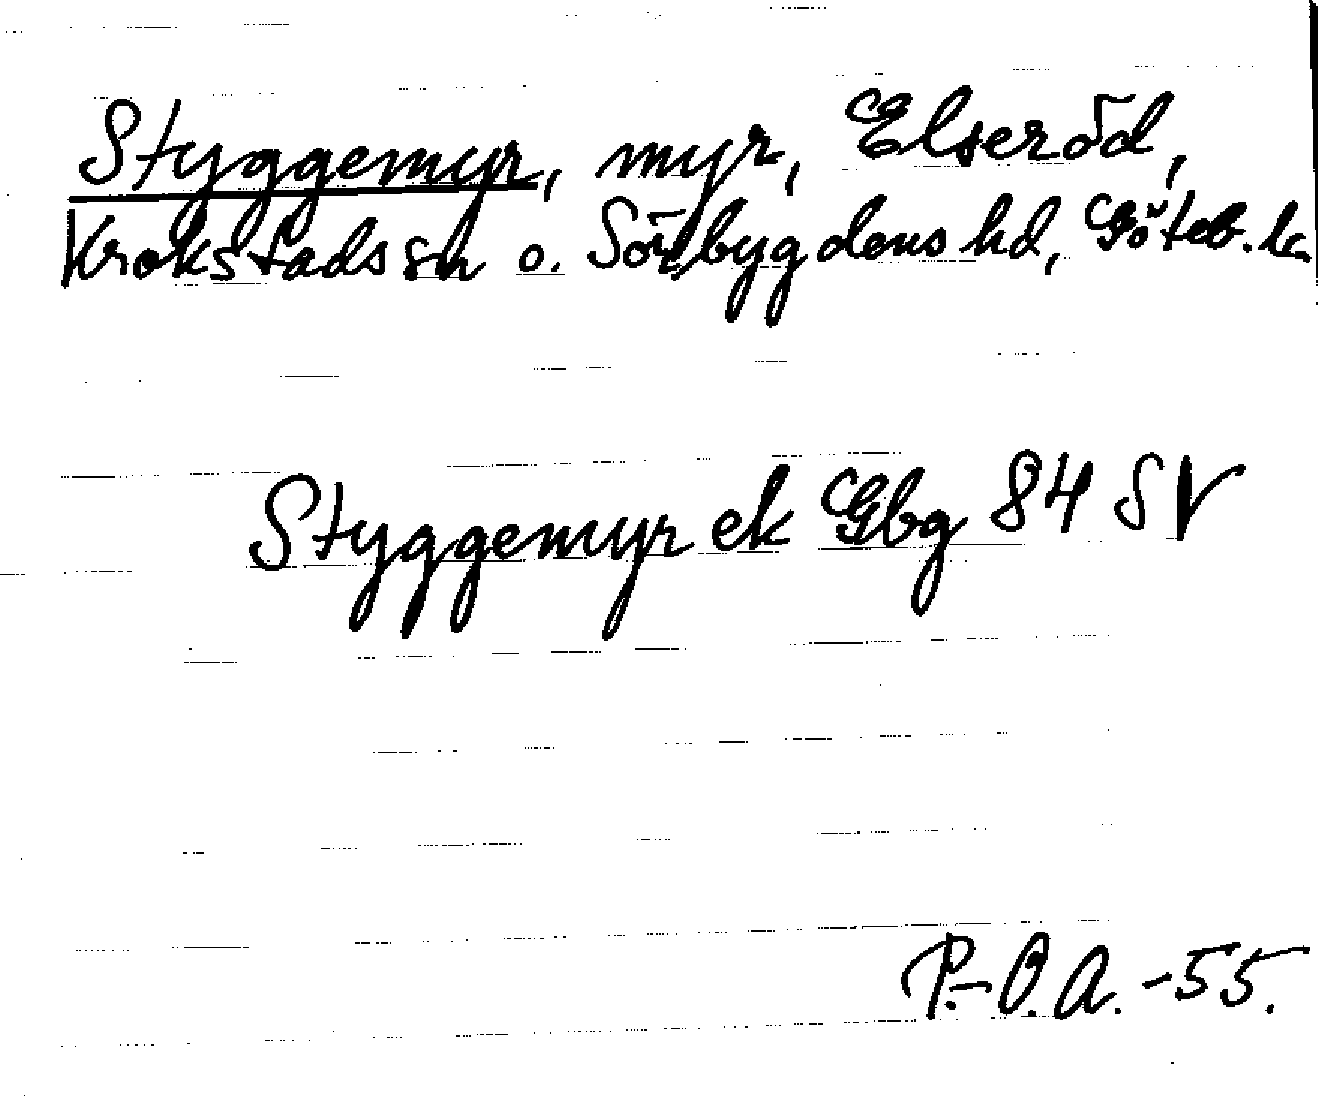 Styggemyr, myr, Elseröd,
Krokstads sn o. Sörbygdens hd, Göteb. l.
Styggemyr ek Gbg 84 SV
P.-O.A. -55.